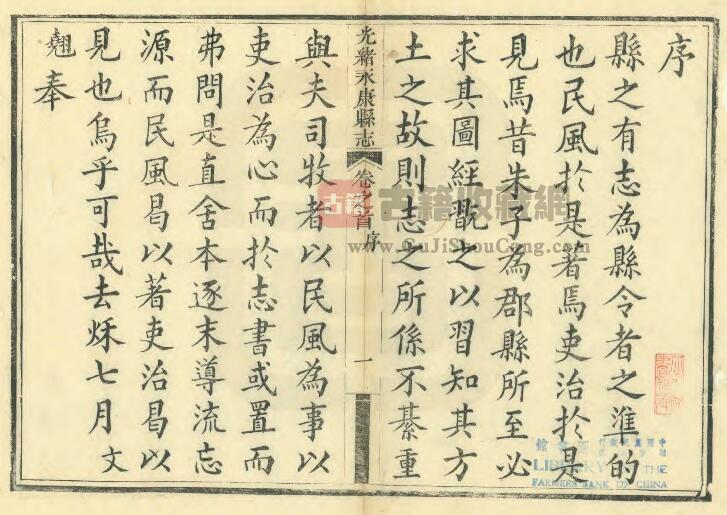 序
縣之有志為縣令者之準的
也民風於是著焉吏治於是
見焉昔朱子為郡縣所至必
求其圖經之以習知其方
土之故則志之所係不綦重
光緒永康縣志 卷之首序 一
與夫司牧者以民風為事以
吏治為心而於志書或置而
弗問是直舍本逐末導流忘
源而民風曷以著吏治曷以
見也烏乎可哉去秌七月文
翹奉
古籍 古籍收藏網
www.GuJiShouCang.com
LIBRARY THE
FARMERS BANK OF CHINA